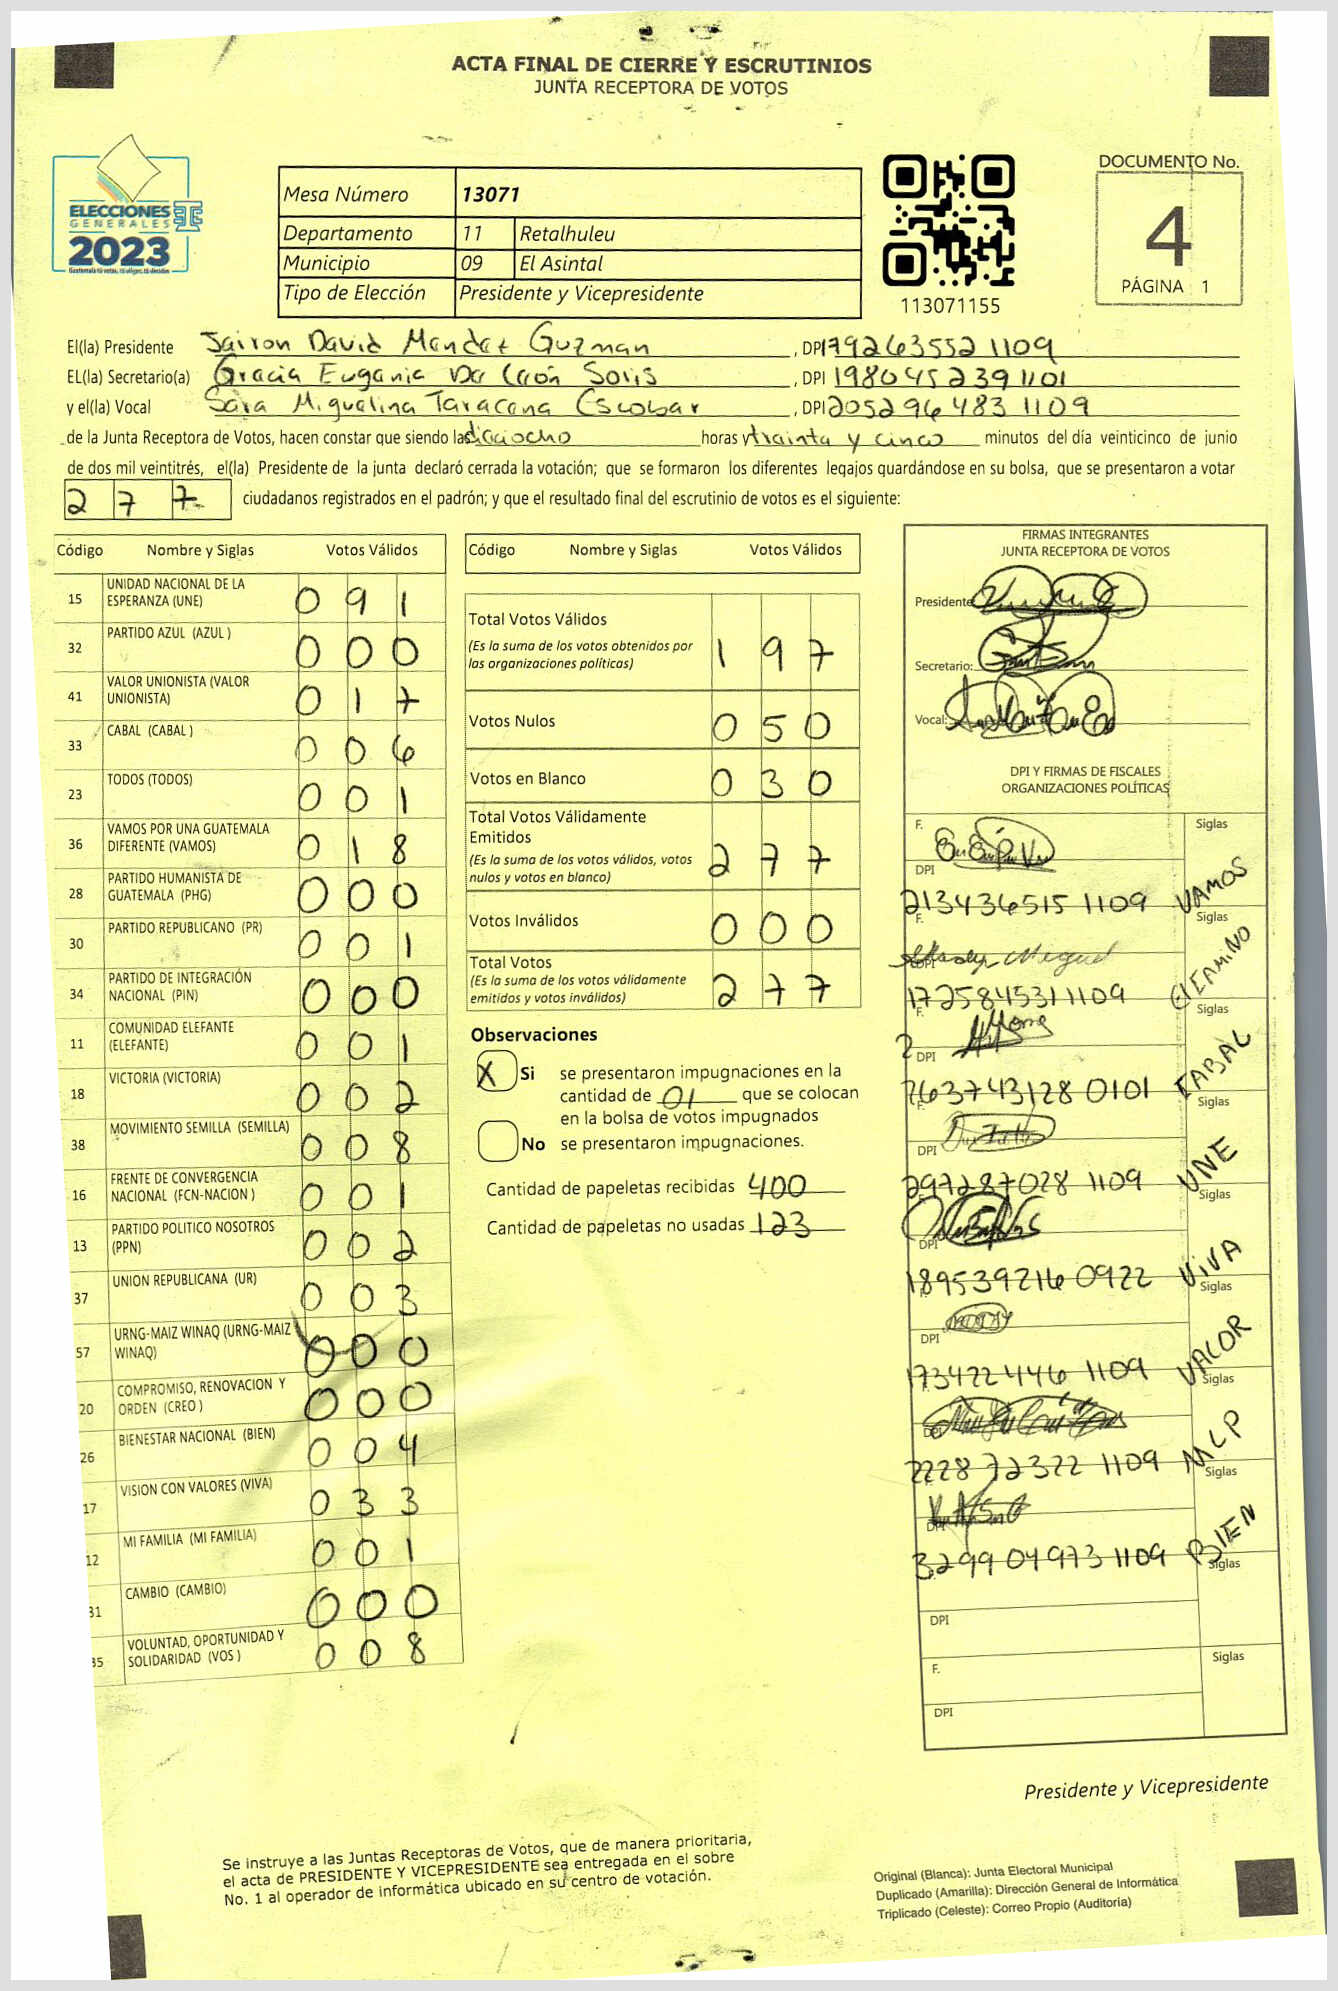 ACTA FINAL DE CIERRE Y ESCRUTINIOS
JUNTA RECEPTORA DE VOTOS
ELECCIONES
GENERALES
2023
Guatemala tú votas, tú eliges, tú decides
Mesa Número 13071
Departamento 11 Retalhuleu
Municipio 09 El Asintal
Tipo de Elección Presidente y Vicepresidente
113071155
DOCUMENTO No.
4
PÁGINA 1
El(la) Presidente Jairon David Mendez Guzman, DPI 792635521109
EL(la) Secretario(a) Gracia Eugenia De León Solis, DPI 1980452391101
y el(la) Vocal Sara Miguelina Taracena Escobar, DPI 2052964831109
de la Junta Receptora de Votos, hacen constar que siendo las dieciocho horas y treinta y cinco minutos del día veinticinco de junio
de dos mil veintitrés, el(la) Presidente de la junta declaró cerrada la votación; que se formaron los diferentes legajos guardándose en su bolsa, que se presentaron a votar
277 ciudadanos registrados en el padrón; y que el resultado final del escrutinio de votos es el siguiente:
Código Nombre y Siglas Votos Válidos
15 UNIDAD NACIONAL DE LA ESPERANZA (UNE) 091
32 PARTIDO AZUL (AZUL ) 000
41 VALOR UNIONISTA (VALOR UNIONISTA) 017
33 CABAL (CABAL ) 006
23 TODOS (TODOS) 001
36 VAMOS POR UNA GUATEMALA DIFERENTE (VAMOS) 018
28 PARTIDO HUMANISTA DE GUATEMALA (PHG) 000
30 PARTIDO REPUBLICANO (PR) 001
34 PARTIDO DE INTEGRACIÓN NACIONAL (PIN) 000
11 COMUNIDAD ELEFANTE (ELEFANTE) 001
18 VICTORIA (VICTORIA) 002
38 MOVIMIENTO SEMILLA (SEMILLA) 008
16 FRENTE DE CONVERGENCIA NACIONAL (FCN-NACION ) 001
13 PARTIDO POLITICO NOSOTROS (PPN) 002
37 UNION REPUBLICANA (UR) 003
57 URNG-MAIZ WINAQ (URNG-MAIZ WINAQ) 000
20 COMPROMISO, RENOVACION Y ORDEN (CREO ) 000
26 BIENESTAR NACIONAL (BIEN) 004
17 VISION CON VALORES (VIVA) 033
12 MI FAMILIA (MI FAMILIA) 001
31 CAMBIO (CAMBIO) 000
35 VOLUNTAD, OPORTUNIDAD Y SOLIDARIDAD (VOS ) 008
Código Nombre y Siglas Votos Válidos
Total Votos Válidos
(Es la suma de los votos obtenidos por
las organizaciones políticas) 197
Votos Nulos 050
Votos en Blanco 030
Total Votos Válidamente
Emitidos
(Es la suma de los votos válidos, votos
nulos y votos en blanco) 277
Votos Inválidos 000
Total Votos
(Es la suma de los votos válidamente
emitidos y votos inválidos) 277
Observaciones
X Si se presentaron impugnaciones en la
cantidad de 01 que se colocan
en la bolsa de votos impugnados
No se presentaron impugnaciones.
Cantidad de papeletas recibidas 400
Cantidad de papeletas no usadas 123
FIRMAS INTEGRANTES
JUNTA RECEPTORA DE VOTOS
Presidente:
Secretario:
Vocal:
DPI Y FIRMAS DE FISCALES
ORGANIZACIONES POLÍTICAS
F. Siglas
DPI
2134365151109 VAMOS
F. Siglas
DPI
1725845311109 El CAMINO
F. Siglas
DPI
2637431280101 CABAL
F. Siglas
DPI
2972870281109 UNE
Siglas
DPI
1895392160922 VIVA
F. Siglas
DPI
1734224461109 VALOR
F. Siglas
DPI
2228723221109 MLP
F. Siglas
DPI
3299049731109 BIEN
F. Siglas
DPI
F. Siglas
DPI
Presidente y Vicepresidente
Se instruye a las Juntas Receptoras de Votos, que de manera prioritaria,
el acta de PRESIDENTE Y VICEPRESIDENTE sea entregada en el sobre
No. 1 al operador de informática ubicado en su centro de votación.
Original (Blanca): Junta Electoral Municipal
Duplicado (Amarilla): Dirección General de Informática
Triplicado (Celeste): Correo Propio (Auditoria)